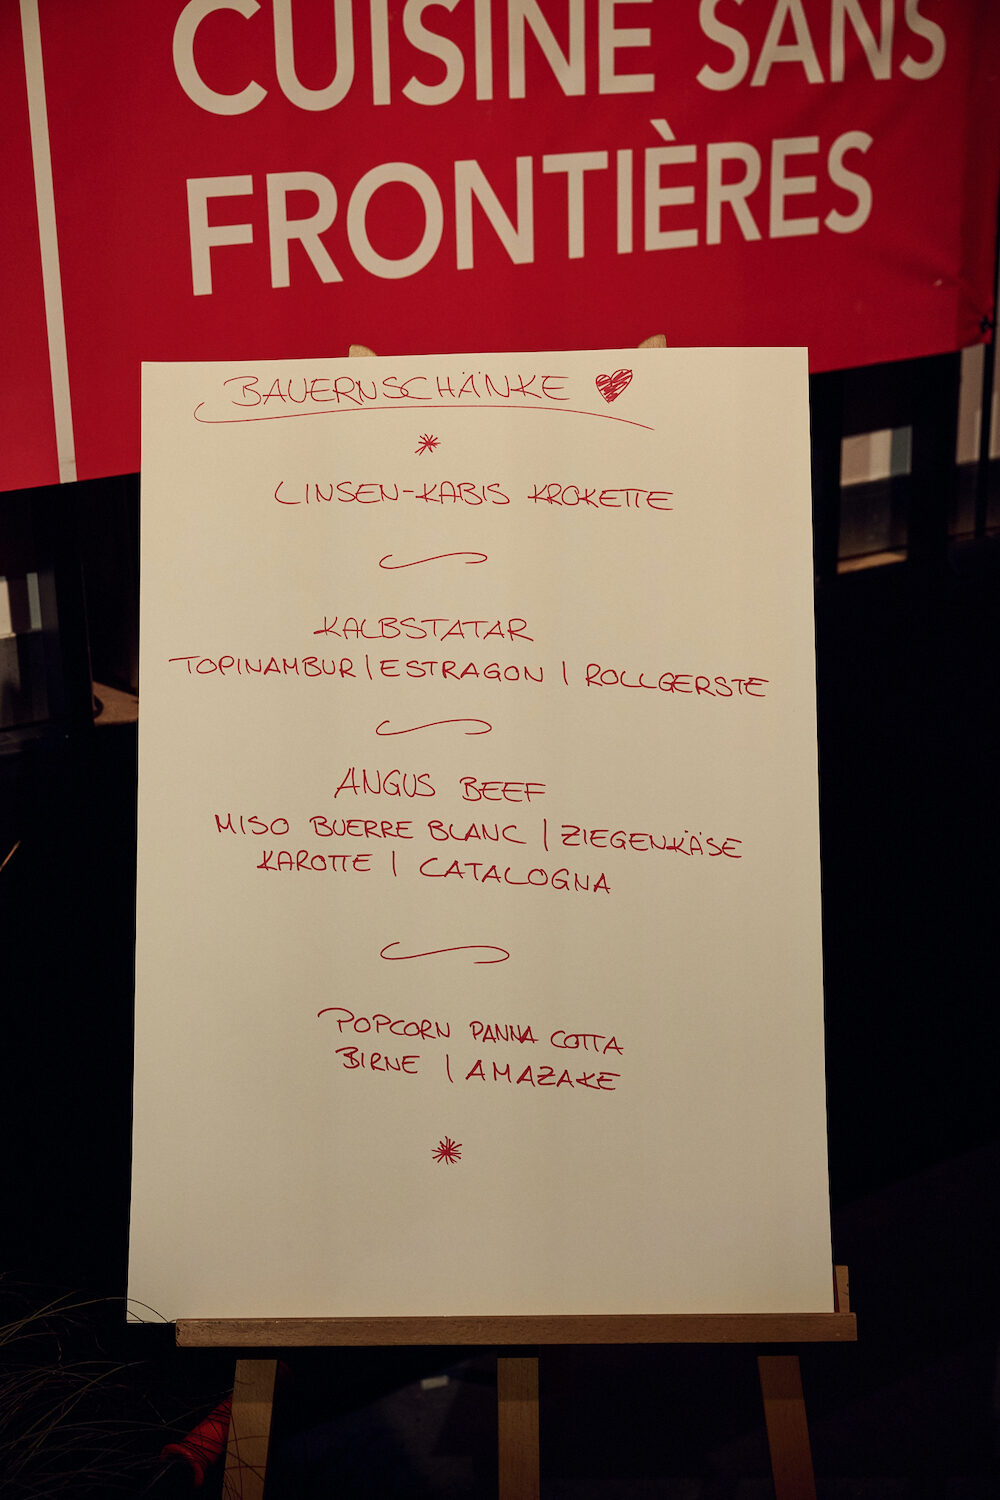 CUISINE SANS
FRONTIÈRES
BAUERNSCHÄNKE
LINSEN-KABIS KROKETTE
KALBSTATAR
TOPINAMBUR | ESTRAGON | ROLLGERSTE
ANGUS BEEF
MISO BUERRE BLANC | ZIEGENKÄSE
KAROTTE | CATALOGNA
POPCORN PANNA COTTA
BIRNE | AMAZAKE